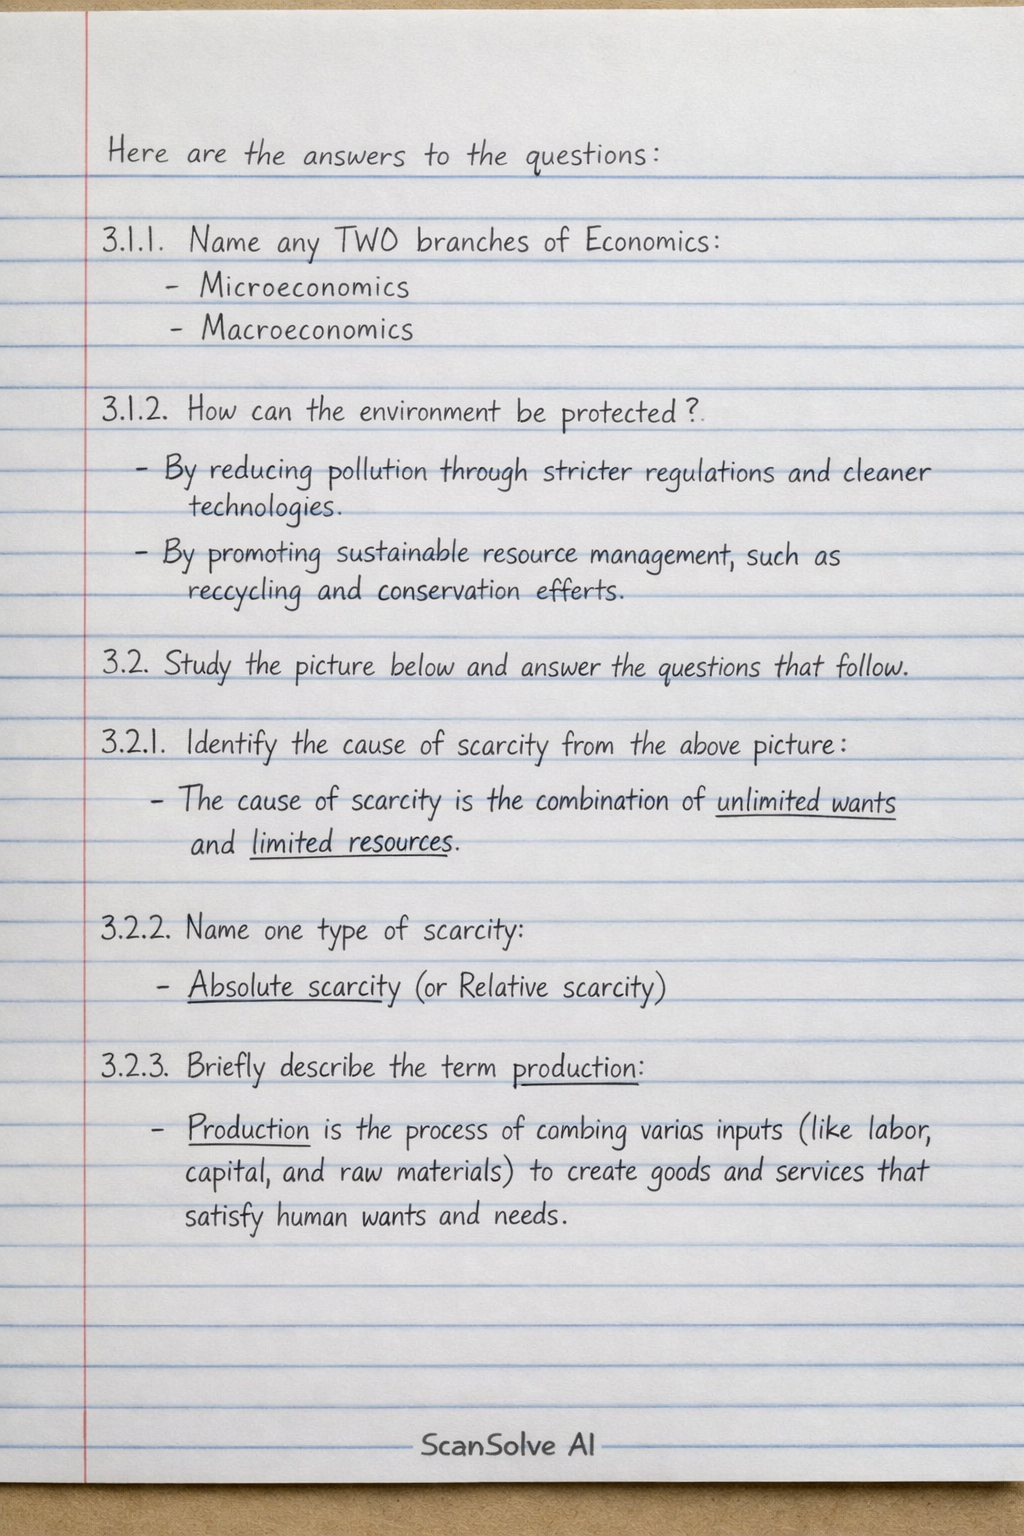 Here are the answers to the questions:
3.1.1. Name any TWO branches of Economics:
- Microeconomics
- Macroeconomics
3.1.2. How can the environment be protected?
- By reducing pollution through stricter regulations and cleaner
technologies.
- By promoting sustainable resource management, such as
reccycling and conservation efferts.
3.2. Study the picture below and answer the questions that follow.
3.2.1. Identify the cause of scarcity from the above picture:
- The cause of scarcity is the combination of unlimited wants
and limited resources.
3.2.2. Name one type of scarcity:
- Absolute scarcity (or Relative scarcity)
3.2.3. Briefly describe the term production:
- Production is the process of combing varias inputs (like labor,
capital, and raw materials) to create goods and services that
satisfy human wants and needs.
ScanSolve AI